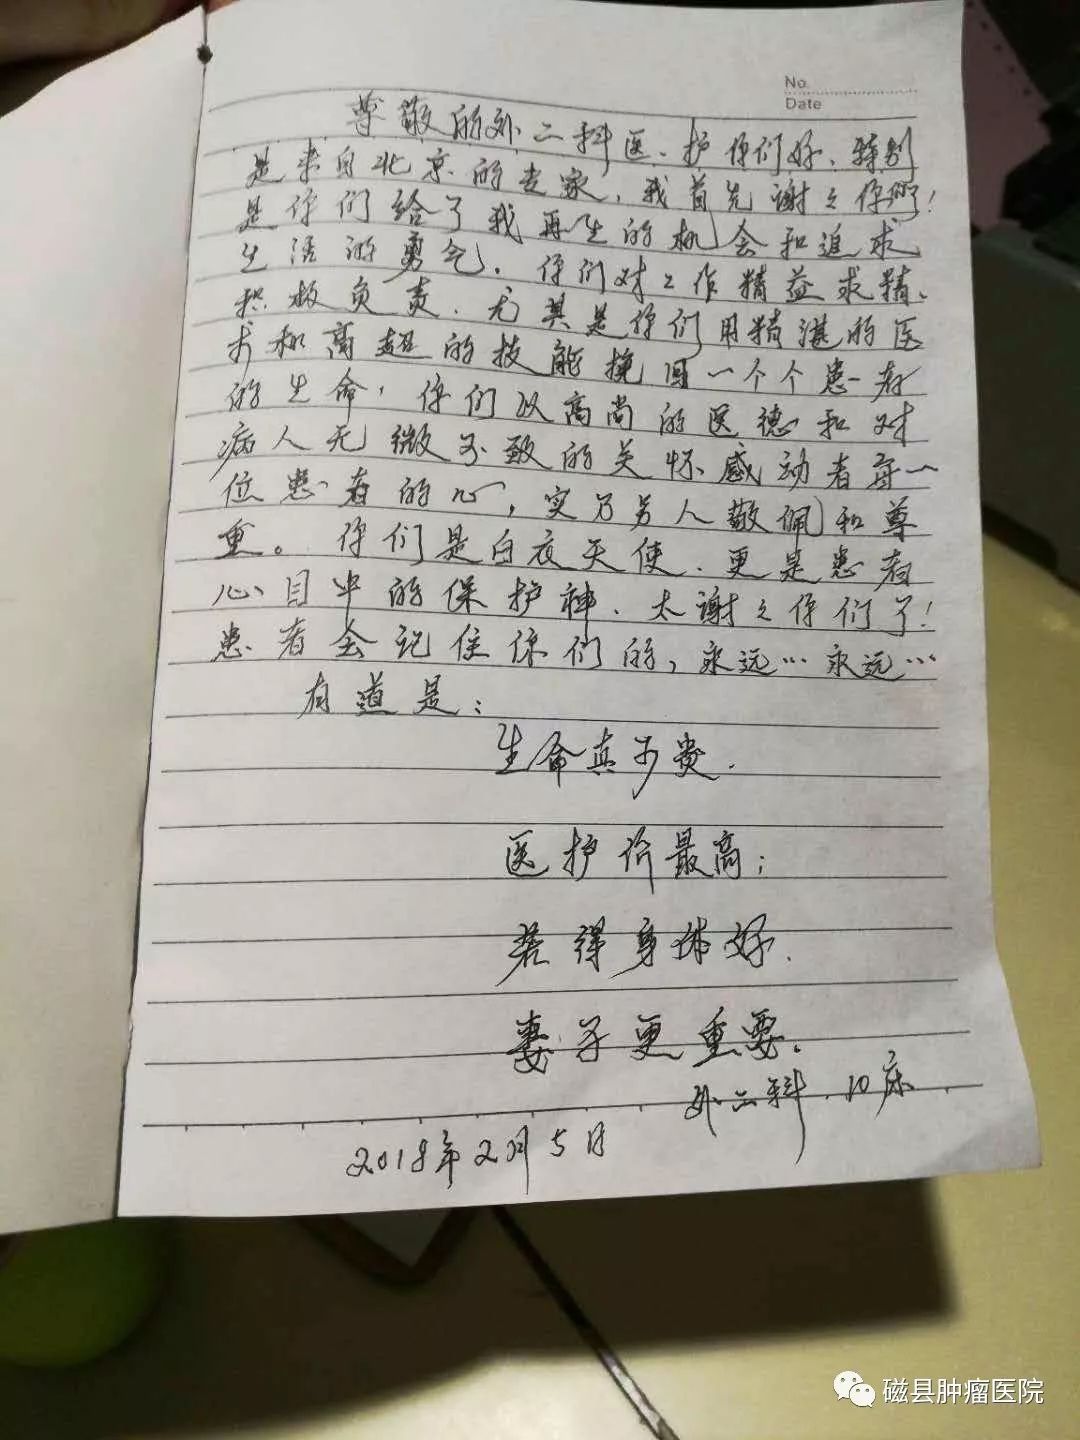 No.
Date
尊敬的外二科医、护你们好、特别
是来自北京的专家，我首先谢之你们！
是你们给了我再生的机会和追求
生活的勇气。你们对工作精益求精、
积极负责．尤其是你们用精湛的医
术和高超的技能挽回一个个患者
的生命，你们以高尚的医德和对
病人无微不致的关怀感动者每一
位患者的心，实乃另人敬佩和尊
重。你们是白衣天使．更是患者
心目中的保护神．太谢之你们了！
患者会记住你们的，永远…永远…
有道是：
生命真可贵．
医护价最高；
若得身体好．
妻子更重要。
外二科．10床
2018年2月5日
磁县肿瘤医院